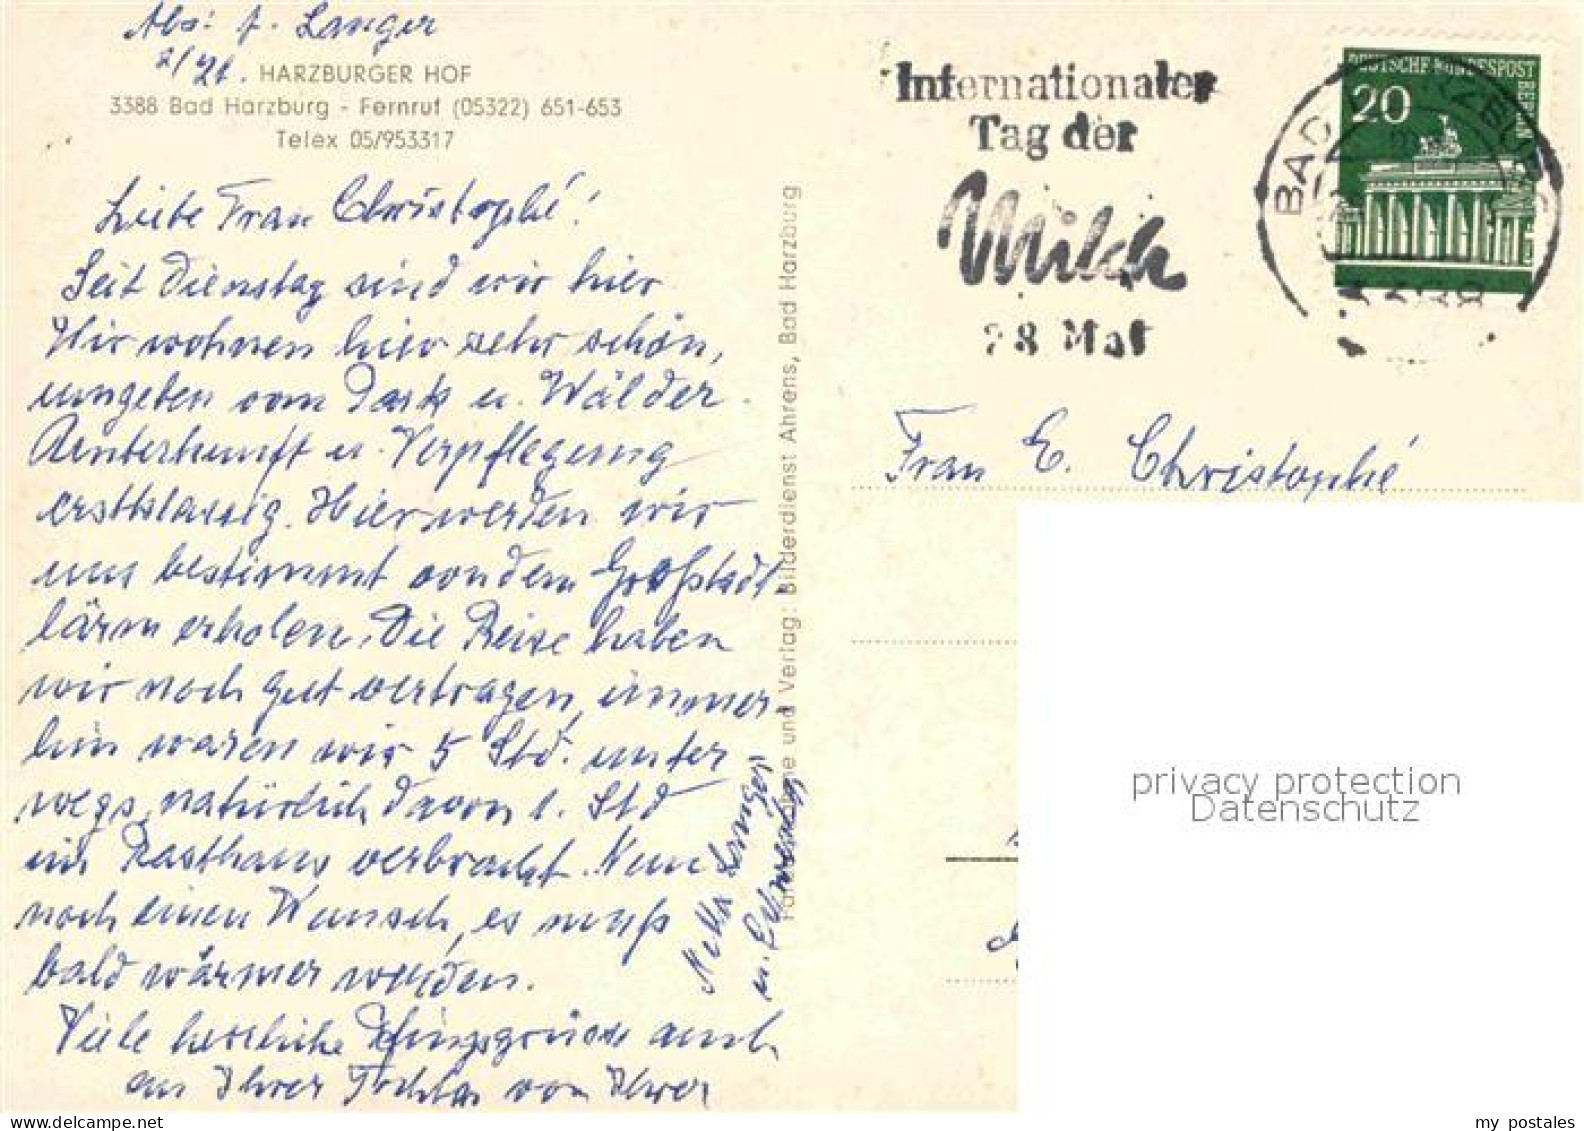 Abs: A. Langer
HARZBURGER HOF
3388 Bad Harzburg - Fernruf (05322) 651-653
Telex 05/953317
Liebe Frau Christophé!
Seit Dienstag sind wir hier
Wir wohnen hier sehr schön,
umgeben vom Park u. Wälder.
Unterkunft u. Verpflegung
erstklassig. Hier werden wir
uns bestimmt von dem Großstadt
lärm erholen. Die Reise haben
wir noch gut vertragen, immer
hin waren wir 5 Std. unter
wegs, natürlich davon 1. Std
im Rasthaus verbracht. Nun
noch einen Wunsch, es muß
bald wärmer werden.
Viele herzliche Pfingstgrüsse auch
an Ihrer Tochter von Ihrer
Langer
u.
Bilderdienst Ahrens, Bad Harzburg
und Verlag:
Internationaler
Tag der
Milch
28 Mai
DEUTSCHE BUNDESPOST
BERLIN
20
BAD HARZBURG
Frau E. Christophé
privacy protection
Datenschutz
my postales